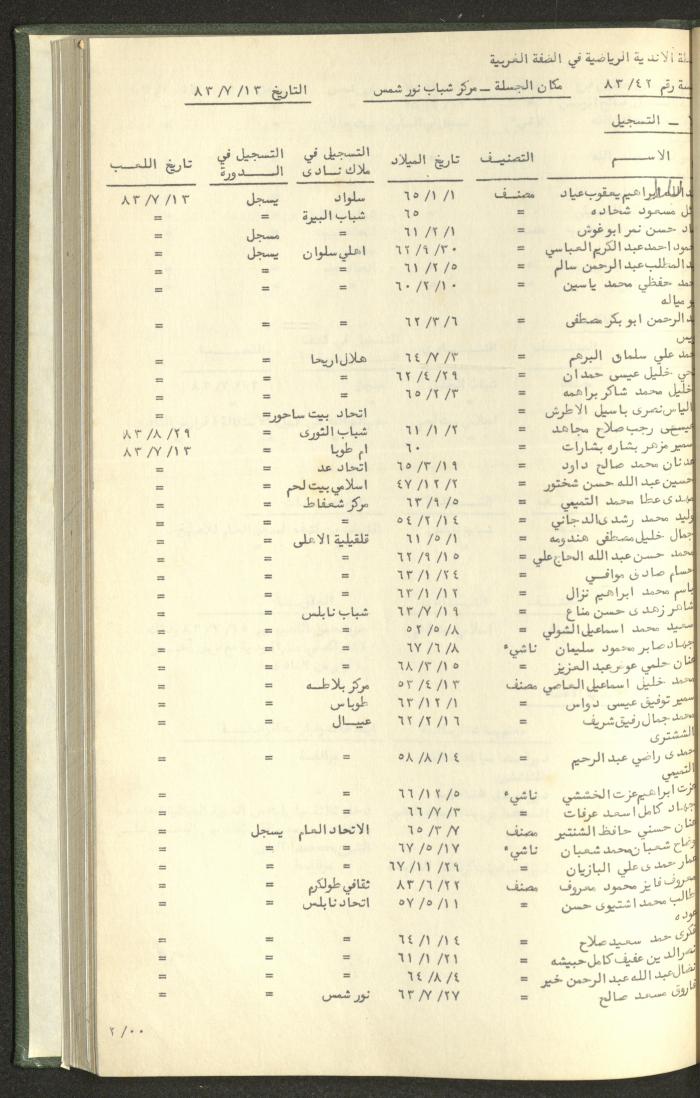 الاندية الرياضية في الضفة الغربية
رقم ٨٣/٤٢ مكان الجلسة ــ مركز شباب نور شمس التاريخ ٨٣/٧/١٣
ــ التسجيل
الاســـم التصنيف تاريخ الميلاد التسجيل في ملاك نادى التسجيل في الـــدورة تاريخ اللعب
ابراهيم يعقوب عياد مصنف ٦٥/١/١ سلواد يسجل ٨٣/٧/١٣
مسعود شحاده = ٦٥ شباب البيرة = =
حسن نمر ابوغوش = ٦١/٢/١ = مسجل =
احمد عبد الكريم العباسي = ٦٢/٩/٣٠ اهلي سلوان يسجل =
المطلب عبد الرحمن سالم = ٦١/٢/٥ = = =
حفظي محمد ياسين = ٦٠/٢/١٠ = = =
مياله
الرحمن ابو بكر مصطفى = ٦٢/٣/٦ = = =
علي سلمان البرهم = ٦٤/٧/٣ هلال اريحا = =
خليل عيسى حمدان = ٦٢/٤/٢٩ = = =
خليل محمد شاكر براهمه = ٦٥/٢/٣ = = =
الياس نصرى باسيل الاطرش = اتحاد بيت ساحور = =
عيسى رجب صلاح مجاهد = ٦١/١/٢ شباب الثورى = ٨٣/٨/٢٩
سمير مزهر بشاره بشارات = ٦٠ ام طوبا = ٨٣/٧/١٣
عدنان محمد صالح داود = ٦٥/٣/١٩ اتحاد عد = =
حسين عبد الله حسن شختور = ٤٧/١٢/٢ اسلامي بيت لحم = =
مهدى عطا محمد التميمي = ٦٣/٩/٥ مركز شعفاط = =
وليد محمد رشدى الدجاني = ٥٤/٢/١٤ = = =
جمال خليل مصطفى هندومه = ٦١/٥/١ قلقيلية الاهلى = =
محمد حسن عبد الله الحاج علي = ٦٢/٩/١٥ = = =
حسام صادق موافي = ٦٣/١/٢٤ = = =
باسم محمد ابراهيم نزال = ٦٣/١/١٢ = = =
شاهر زهدى حسن مناع = ٦٣/٧/١٩ شباب نابلس = =
سعيد محمد اسماعيل الشولي = ٥٢/٥/٨ = = =
جهاد صابر محمود سليمان ناشيء ٦٧/٦/٨ = = =
عنان حلمي عوض عبد العزيز = ٦٨/٣/١٥ = = =
محمد خليل اسماعيل العاصي مصنف ٥٣/٤/١٣ مركز بلاطه = =
سمير توفيق عيسى دواس = ٦٣/١٢/١ طوباس = =
محمد جمال رفيق شريف = ٦٢/٢/١٦ عيبال = =
الششترى
حمدى راضي عبد الرحيم = ٥٨/٨/١٤ = = =
التميمي
عزت ابراهيم عزت الخششي ناشيء ٦٦/١٢/٥ = = =
جهاد كامل اسعد عرفات = ٦٦/٧/٣ = = =
عنان حسني حافظ الشنتير مصنف ٦٥/٣/٧ الاتحاد العام يسجل =
وضاح شعبان محمد شعبان ناشيء ٦٧/٥/١٧ = = =
عمار حمدى علي البازيان = ٦٧/١١/٢٩ = = =
معروف فايز محمود معروف مصنف ٨٣/٦/٢٢ ثقافي طولكرم = =
طالب محمد اشتيوى حسن = ٥٧/٥/١١ اتحاد نابلس = =
عوده
فكرى حمد سعيد صلاح = ٦٤/١/١٤ = = =
نصر الدين عفيف كامل حبيشه = ٦١/١/٢١ = = =
نضال عبد الله عبد الرحمن خير = ٦٤/٨/٤ = = =
فاروق مسعد صالح = ٦٣/٧/٢٧ نور شمس = =
٢/٠٠